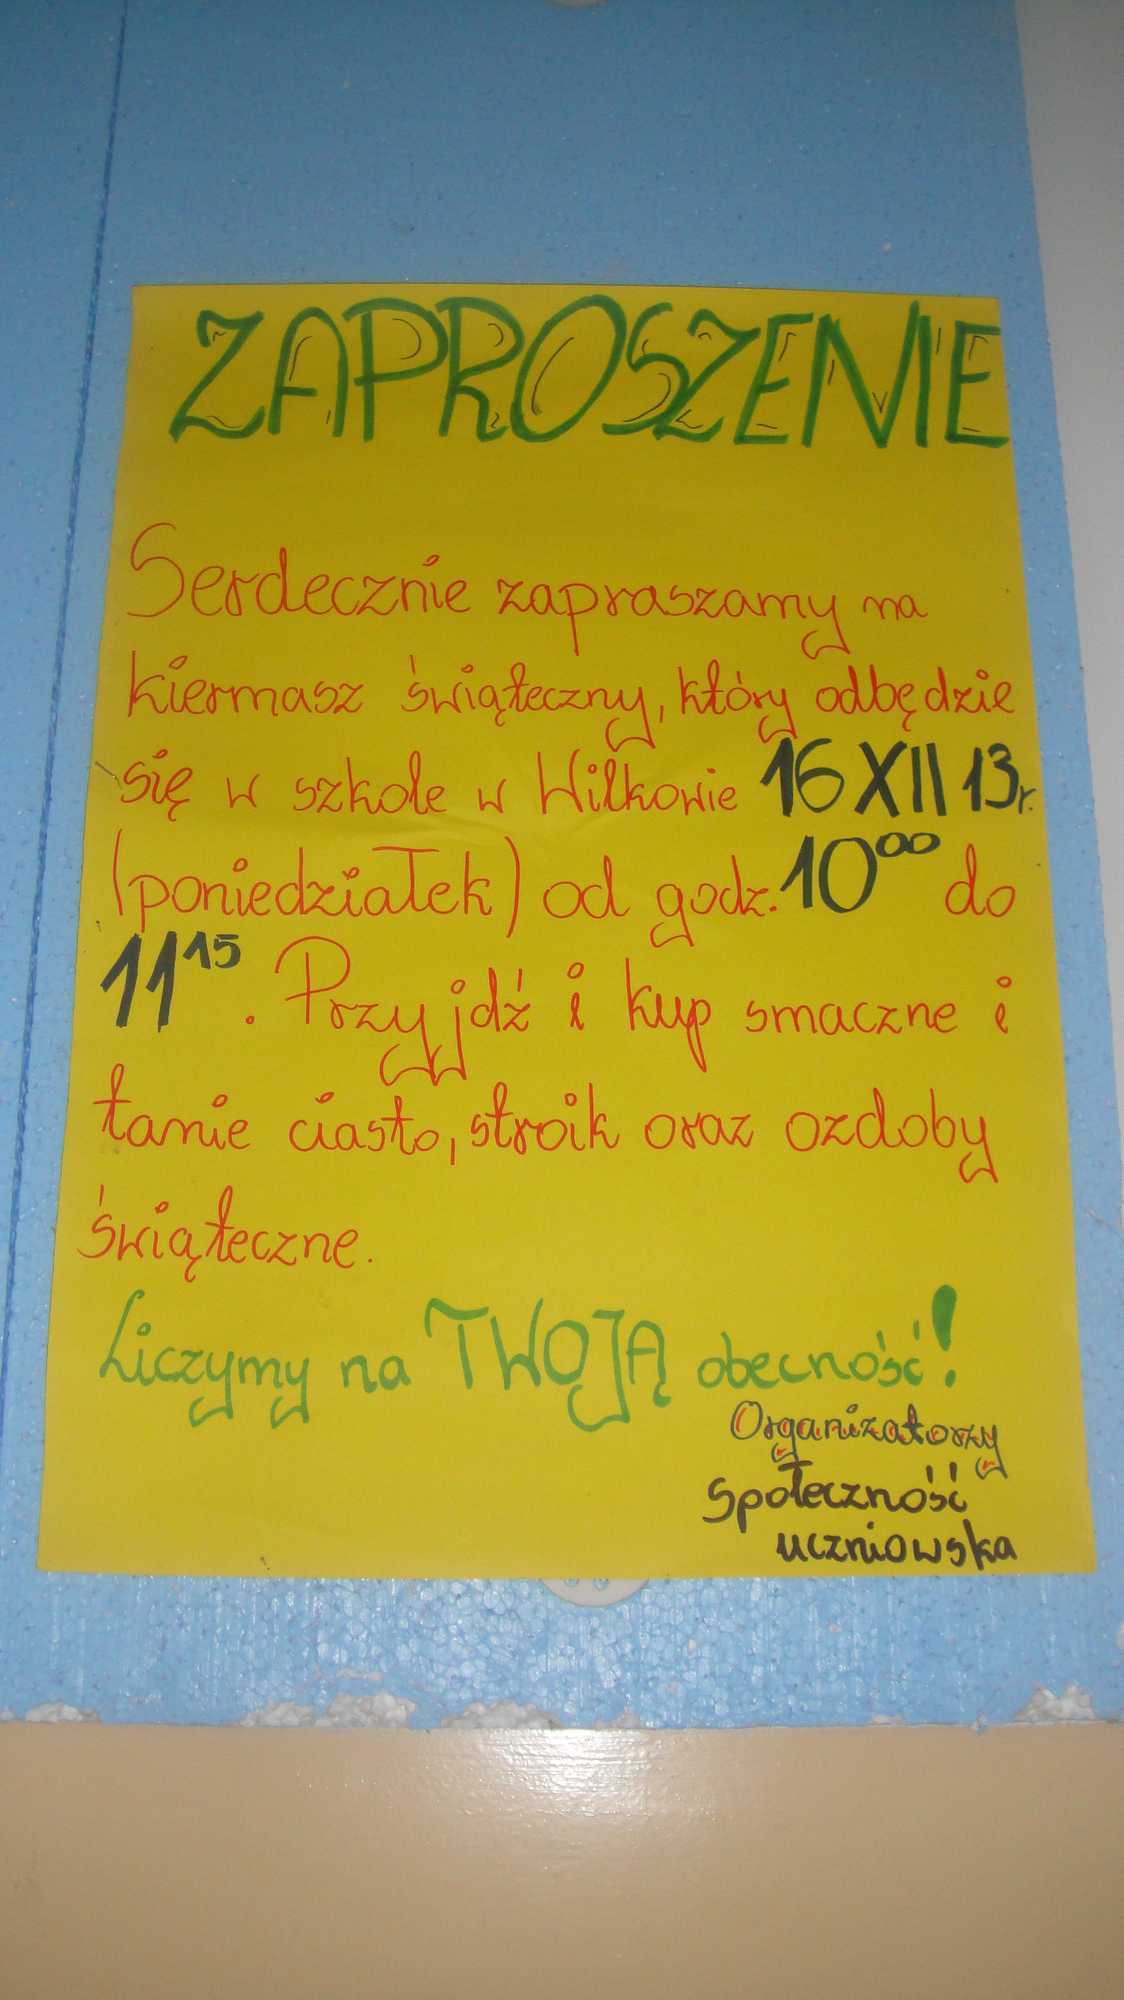 ZAPROSZENIE
Serdecznie zapraszamy na
kiermasz świąteczny, który odbędzie
się w szkole w Wilkowie 16 XII 13r.
(poniedziałek) od godz. 10⁰⁰ do
11¹⁵. Przyjdź i kup smaczne i
tanie ciasto, stroik oraz ozdoby
świąteczne.
Liczymy na TWOJĄ obecność!
Organizatorzy
Społeczność
uczniowska